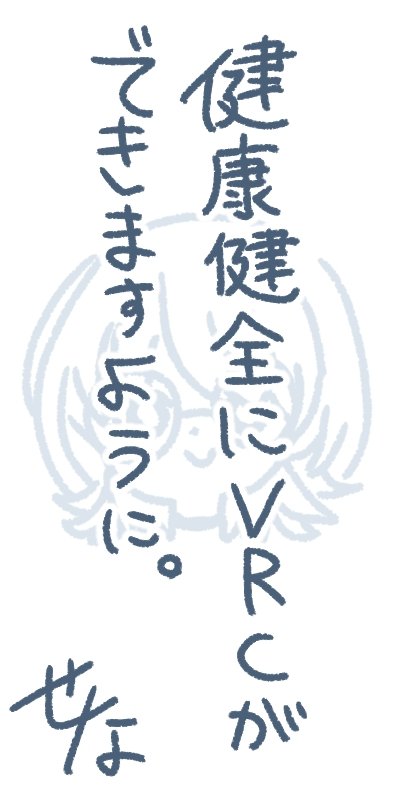 健康健全にVRCが
できますように。
せな